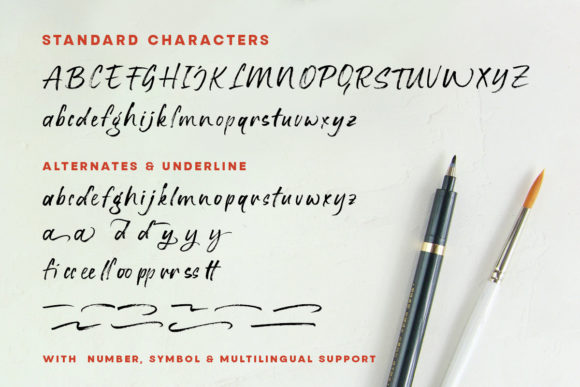 STANDARD CHARACTERS
ABCEFGHIJKLMNOPQRSTUVWXYZ
abcdefghijklmnopqrstuvwxyz
ALTERNATES & UNDERLINE
abcdefghijklmnopqrstuvwxyz
a a d d y y y
fi cc ee ll oo pp rr ss tt
WITH NUMBER, SYMBOL & MULTILINGUAL SUPPORT